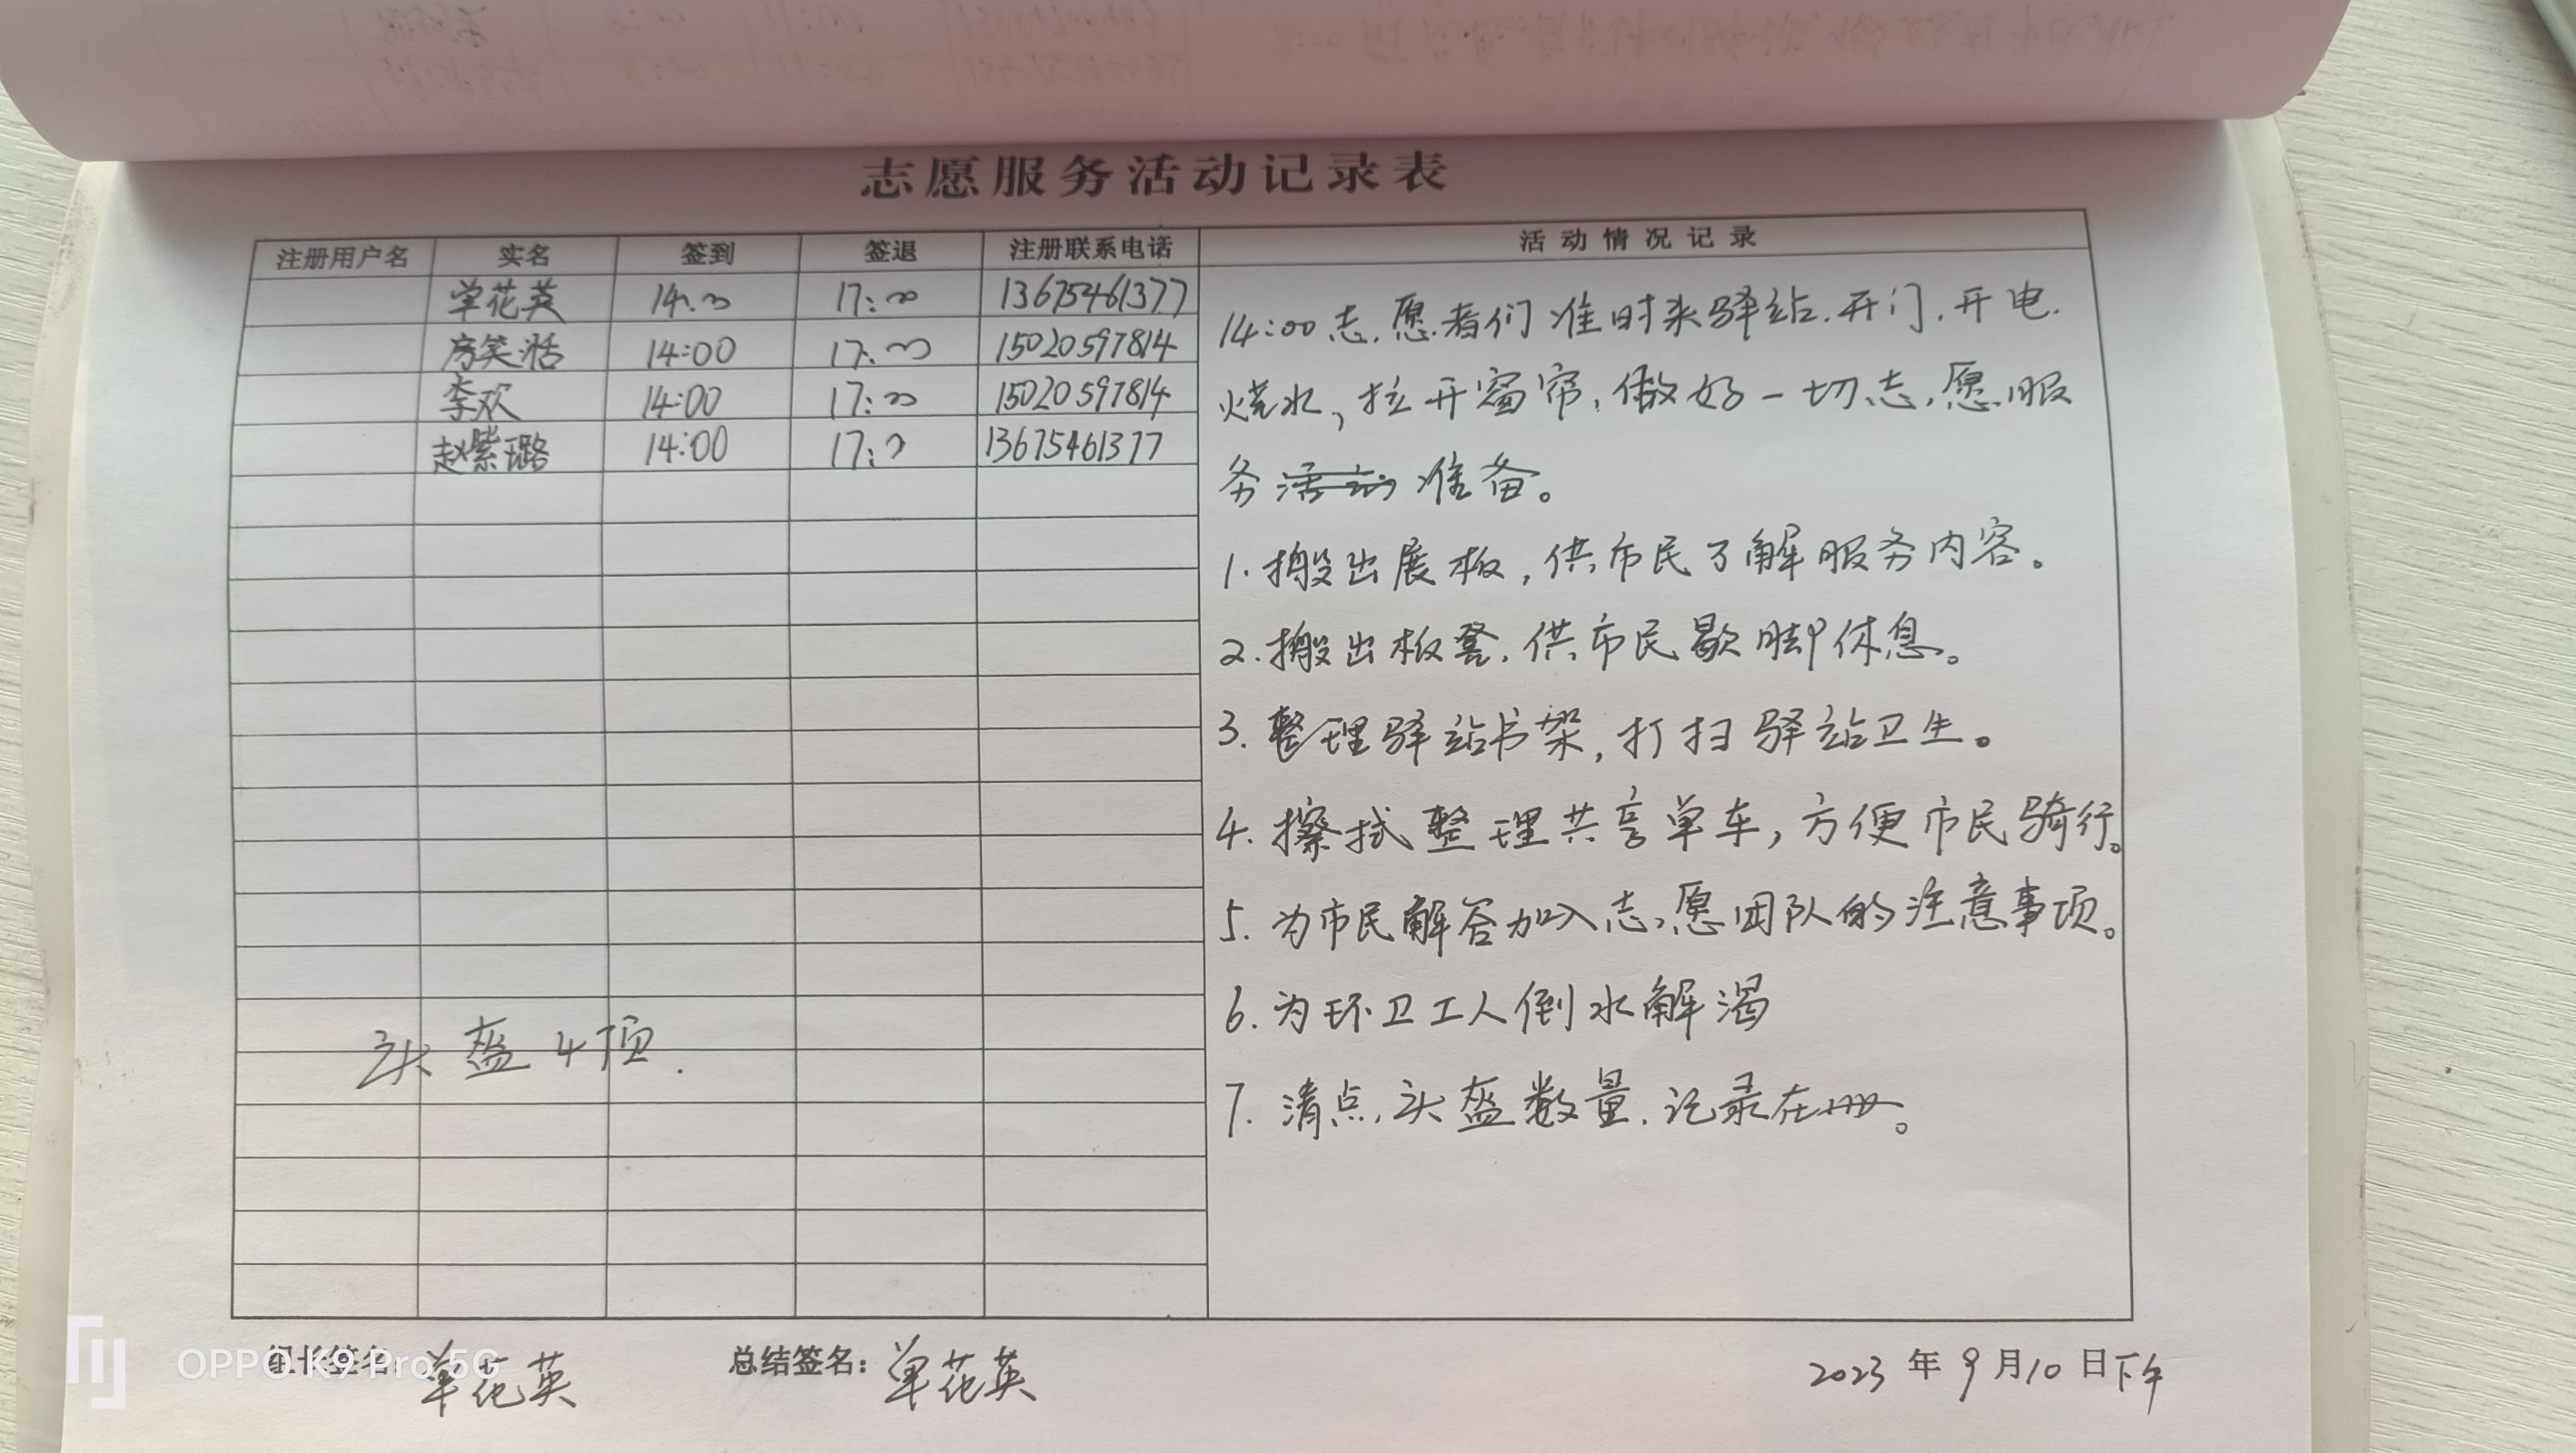 志愿服务活动记录表
注册用户名 实名 签到 签退 注册联系电话 活动情况记录
单花英 14:00 17:00 13675461377
房笑湉 14:00 17:00 15020597814
李欢 14:00 17:00 15020597814
赵紫璐 14:00 17:0 13675461377
14:00志愿者们准时来驿站.开门.开电.
烧水,拉开窗帘,做好一切志愿服
务活动准备。
1.搬出展板,供市民了解服务内容。
2.搬出板凳,供市民歇脚休息。
3.整理驿站书架,打扫驿站卫生。
4.擦拭整理共享单车,方便市民骑行。
5.为市民解答加入志愿团队的注意事项。
6.为环卫工人倒水解渴
7.清点头盔数量.记录在册。
头盔4顶.
组长签名:单花英 总结签名:单花英 2023年9月10日下午
OPPO K9 Pro 5G